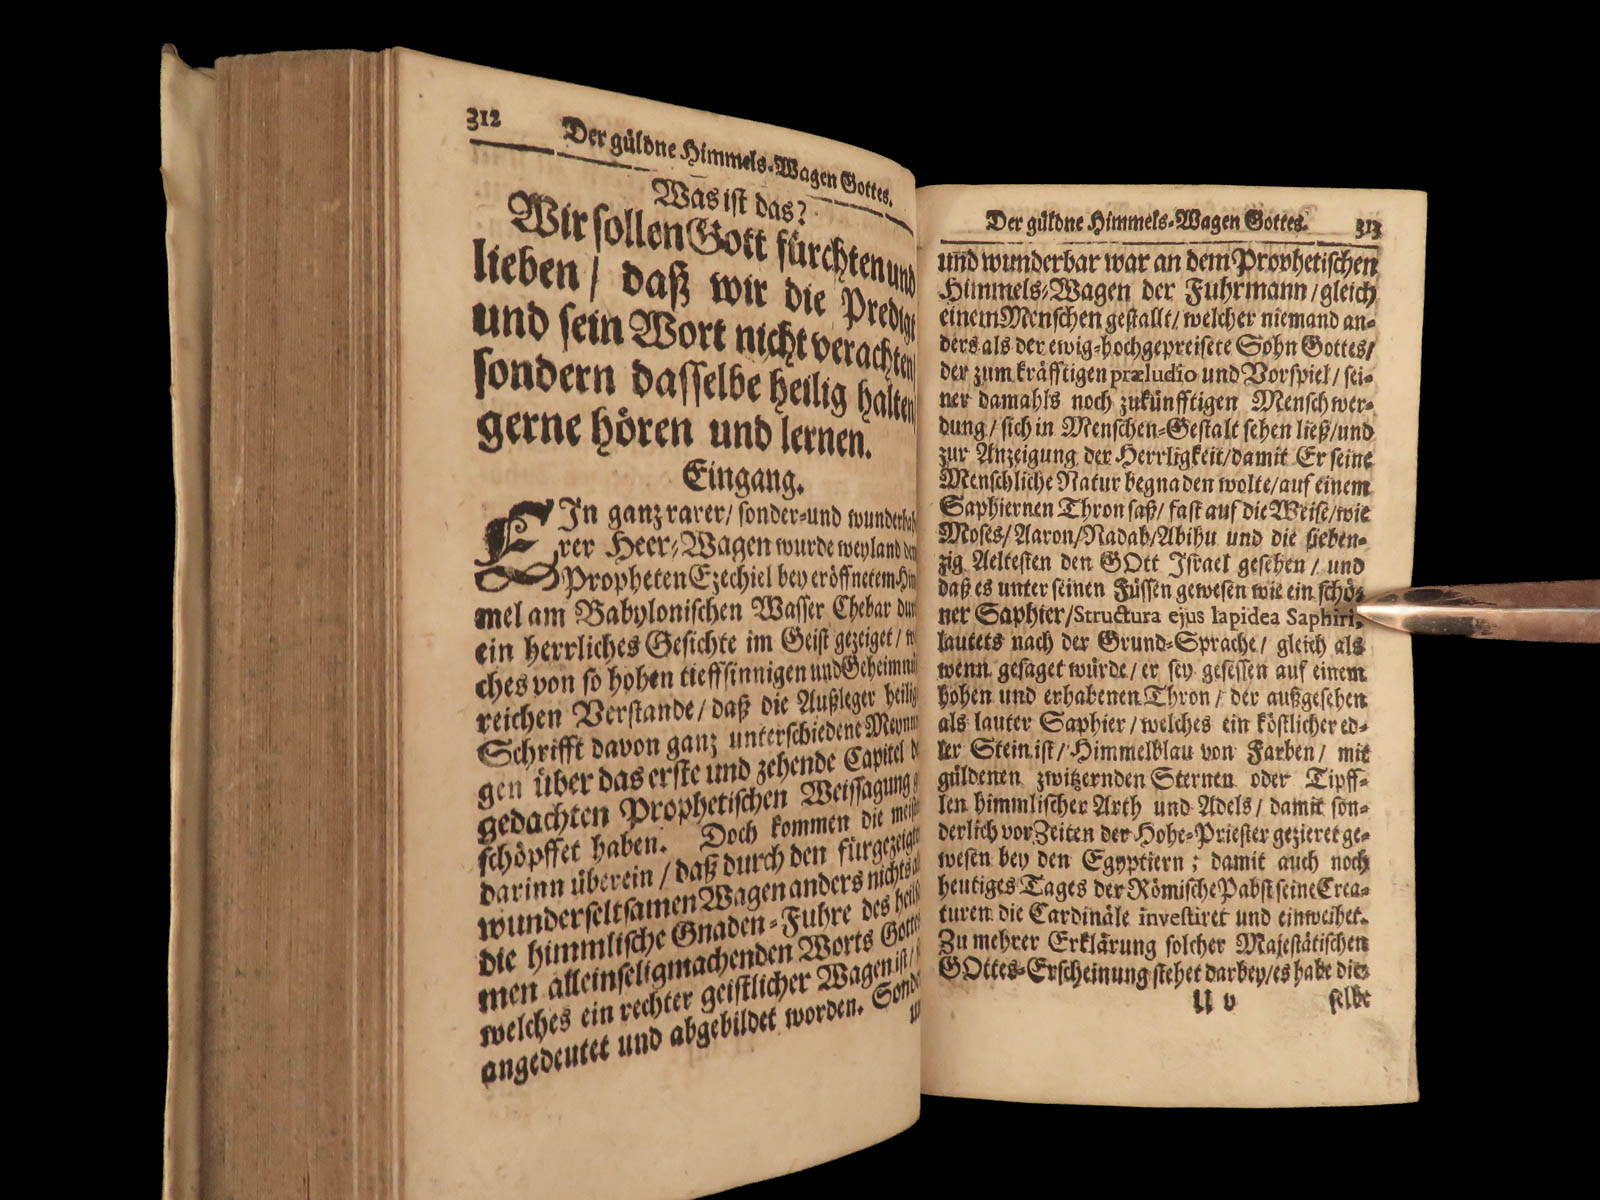 312 Der güldne Himmels-Wagen Gottes.
Was ist das?
Wir sollen Gott fürchten und
lieben / daß wir die Predigt
und sein Wort nicht verachten
sondern dasselbe heilig halten
gerne hören und lernen.
Eingang.
EIn ganz rarer / sonder- und
rer Heer-Wagen wurde weyland
Propheten Ezechiel bey eröffnetem
mel am Babylonischen Wasser Chebar
ein herrliches Gesichte im Geist gezeiget /
ches von so hohen tieffsinnigen und
reichen Verstande / daß die Außleger
Schrifft davon ganz unterschiedene
gen über das erste und zehende Capitel
gedachten Prophetischen Weissagung
schöpffet haben. Doch kommen die
darinn überein / daß durch den
wunderseltsamen Wagen anders nichts
die himmlische Gnaden-Fuhre des
men alleinseligmachenden Worts
welches ein rechter geistlicher Wagen ist /
angedeutet und abgebildet worden.
Der güldne Himmels-Wagen Gottes. 313
und wunderbar war an dem Prophetischen
Himmels-Wagen der Fuhrmann / gleich
einem Menschen gestallt / welcher niemand an-
ders als der ewig-hochgepreisete Sohn Gottes /
der zum kräfftigen præludio und Vorspiel / sei-
ner damahls noch zukünfftigen Menschwer-
dung / sich in Menschen-Gestalt sehen ließ / und
zur Anzeigung der Herrligkeit / damit Er seine
Menschliche Natur begnaden wolte / auf einem
Saphiernen Thron saß / fast auf die Weise / wie
Moses / Aaron / Nadab / Abihu und die sieben-
zig Aeltesten den GOtt Israel gesehen / und
daß es unter seinen Füssen gewesen wie ein schö-
ner Saphier / Structura ejus lapidea Saphiri,
lautets nach der Grund-Sprache / gleich als
wenn gesaget würde / er sey gesessen auf einem
hohen und erhabenen Thron / der außgesehen
als lauter Saphier / welches ein köstlicher ed-
ler Stein ist / Himmelblau von Farben / mit
güldenen zwitzernden Sternen oder Tipff-
len himmlischer Arth und Adels / damit son-
derlich vor Zeiten der Hohe-Priester gezieret ge-
wesen bey den Egyptiern ; damit auch noch
heutiges Tages der Römische Pabst seine Crea-
turen die Cardinäle investiret und einweihet.
Zu mehrer Erklärung solcher Majestätischen
GOttes-Erscheinung stehet darbey / es habe die-
U v selbe